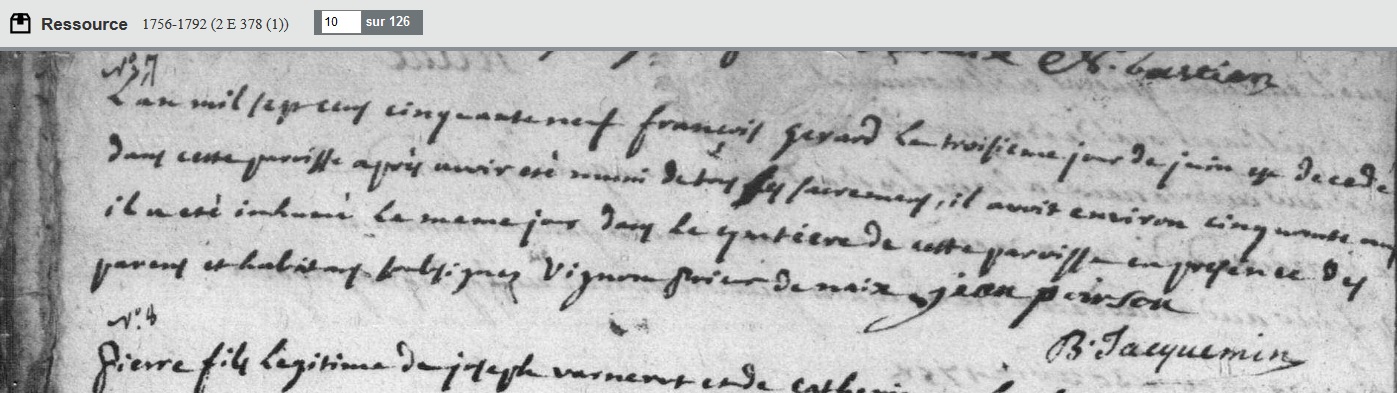 Ressource 1756-1792 (2 E 378 (1)) 10 sur 126
N. bastien
N°. 7
L'an mil sept cens cinquante neuf françois gerard le troisieme jour de juin est decedé
dans cette paroisse après avoir eté muni de tous les sacremens, il avoit environ cinquante ans
il a eté inhumé le meme jour dans le cymtiere de cette paroisse en presence des
parens et habitans soubsignez Vignon prieur de naix jean poirson
B. Jacquemin
N°. 8
Pierre fils legitime de joseph varneret et de